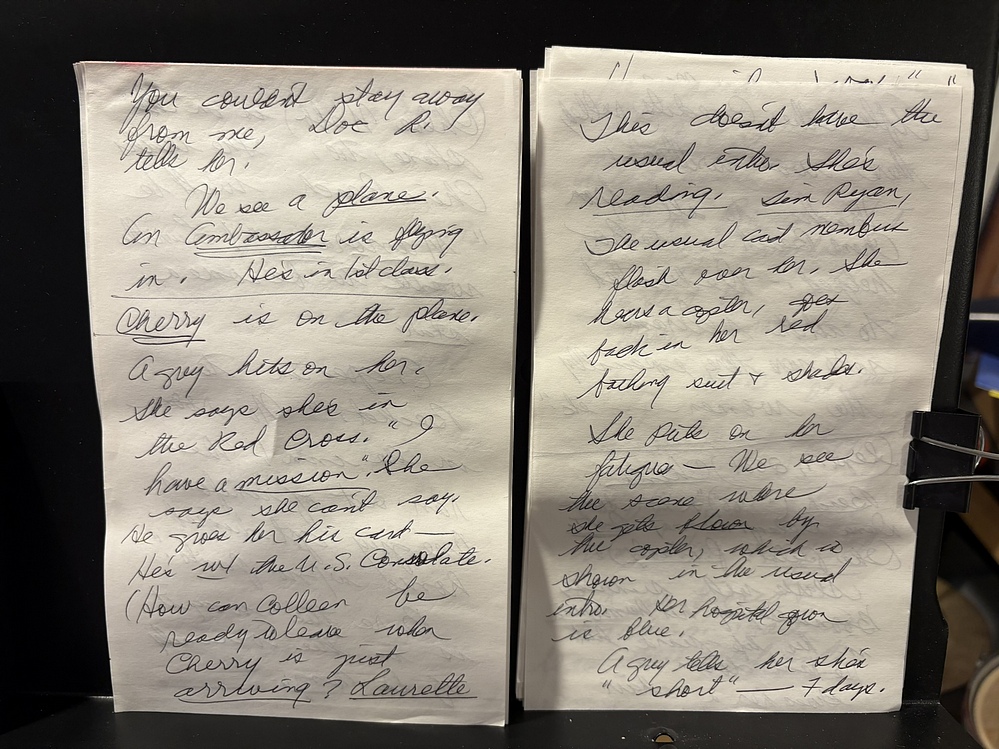 You couldn't stay away
from me, Doc R.
tells her.
We see a plane.
An Ambassador is flying
in. He's in 1st class.
Cherry is on the plane.
A guy hits on her.
She says she's in
the Red Cross. "I
have a mission" She
says she can't say.
He gives her his card—
He's w/ the U.S. Consolate.
(How can Colleen be
ready to leave when
Cherry is just
arriving? Laurette
This doesn't have the
usual intro. She's
reading. Ryan,
The usual cast members
flash over her. She
hears a copter, goes
back in her red
bathing suit & shades.
She puts on her
fatigues — We see
the scene where
she gets blown by
the copter, which is
shown in the usual
intro. Her hospital gown
is blue.
A guy tells her she's
"short" — 7 days.